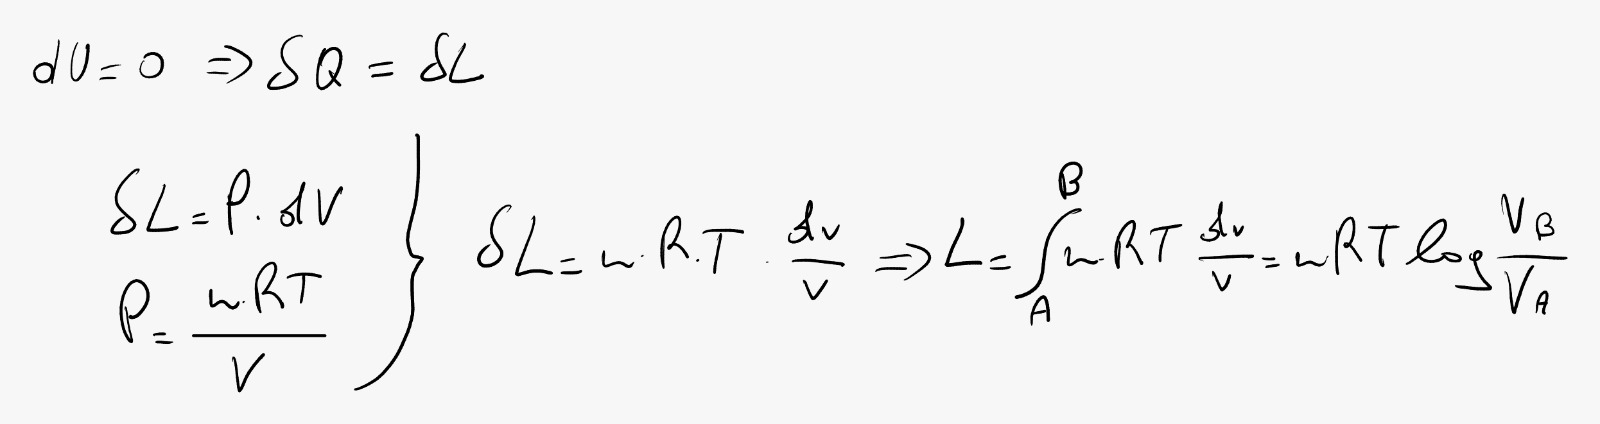 dU = 0 ⇒ δQ = δL
δL = P · dV
P = n·RT / V
} δL = n·R·T · dv/v ⇒ L = ∫_A^B n·RT dv/v = nRT log V_B/V_A